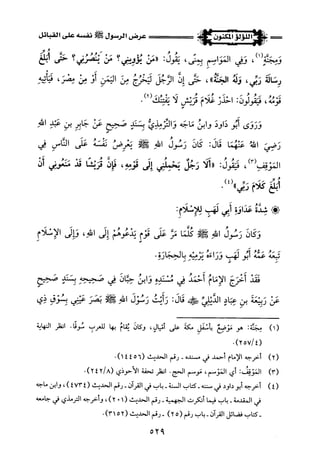 اللؤلؤ المكنون
عرض الرسول ﷺ نفسه على القبائل
وَمِجَنَّةَ(١)، وَفِي الْمَوَاسِمِ بِمِنًى، يَقُولُ: «مَنْ يُؤْوِينِي؟ مَنْ يَنْصُرُنِي؟ حَتَّى أُبَلِّغَ
رِسَالَةَ رَبِّي، وَلَهُ الْجَنَّةُ»، حَتَّى إِنَّ الرَّجُلَ لَيَخْرُجُ مِنَ الْيَمَنِ أَوْ مِنْ مِصْرَ، فَيَأْتِيهِ
قَوْمُهُ، فَيَقُولُونَ: احْذَرْ غُلَامَ قُرَيْشٍ لَا يَفْتِنُكَ(٢).
وَرَوَى أَبُو دَاودَ وَابنُ مَاجَه وَالتِّرْمِذِيُّ بِسَنَدٍ صَحِيحٍ عَنْ جَابِرِ بنِ عَبْدِ اللهِ
رَضِيَ اللهُ عَنْهُمَا قَالَ: كَانَ رَسُولُ اللهِ ﷺ يَعْرِضُ نَفْسَهُ عَلَى النَّاسِ فِي
الْمَوْقِفِ(٣)، فَيَقُولُ: «أَلَا رَجُلٌ يَحْمِلُنِي إِلَى قَوْمِهِ، فَإِنَّ قُرَيْشًا قَدْ مَنَعُونِي أَنْ
أُبَلِّغَ كَلَامَ رَبِّي»(٤).
شِدَّةُ عَدَاوَةِ أَبِي لَهَبٍ لِلْإِسْلَامِ:
وَكَانَ رَسُولُ اللهِ ﷺ كُلَّمَا مَرَّ عَلَى قَوْمٍ يَدْعُوهُمْ إِلَى اللهِ، وَإِلَى الْإِسْلَامِ
تَبِعَهُ عَمُّهُ أَبُو لَهَبٍ وَرَاءَهُ يَرْمِيهِ بِالحِجَارَةِ.
فَقَدْ أَخْرَجَ الْإِمَامُ أَحْمَدُ فِي مُسْنَدِهِ وَابنُ حِبَّانَ فِي صَحِيحِهِ بِسَنَدٍ صَحِيحٍ
عَنْ رَبِيعَةَ بنِ عِبَادٍ الدِّيْلِيِّ ﷺ قَالَ: رَأَيْتُ رَسُولَ اللهِ ﷺ بَصَرَ عَيْنِي بِسُوقِ ذِي
(١) مِجَنَّة: هو مَوْضِعٌ بأسْفَلِ مكةَ على أميالٍ، وكان يُقَامُ بها للعربِ سُوقًا. انظر النهاية
(٢٥٧/٤).
(٢) أخرجه الإمام أحمد في مسنده - رقم الحديث (١٤٤٥٦).
(٣) المَوْقِفُ: أي المَوْسِم، مَوسِم الحج. انظر تحفة الأحوذي (٢٤٢/٨).
(٤) أخرجه أبو داود في سننه - كتاب السنة - باب في القرآن - رقم الحديث (٤٧٣٤)، وابن ماجه
في المقدمة - باب فيما أنكرت الجهمية - رقم الحديث (٢٠١)، وأخرجه الترمذي في جامعه
- كتاب فضائل القرآن - باب رقم (٢٥) - رقم الحديث (٣١٥٢).
٥٢٩